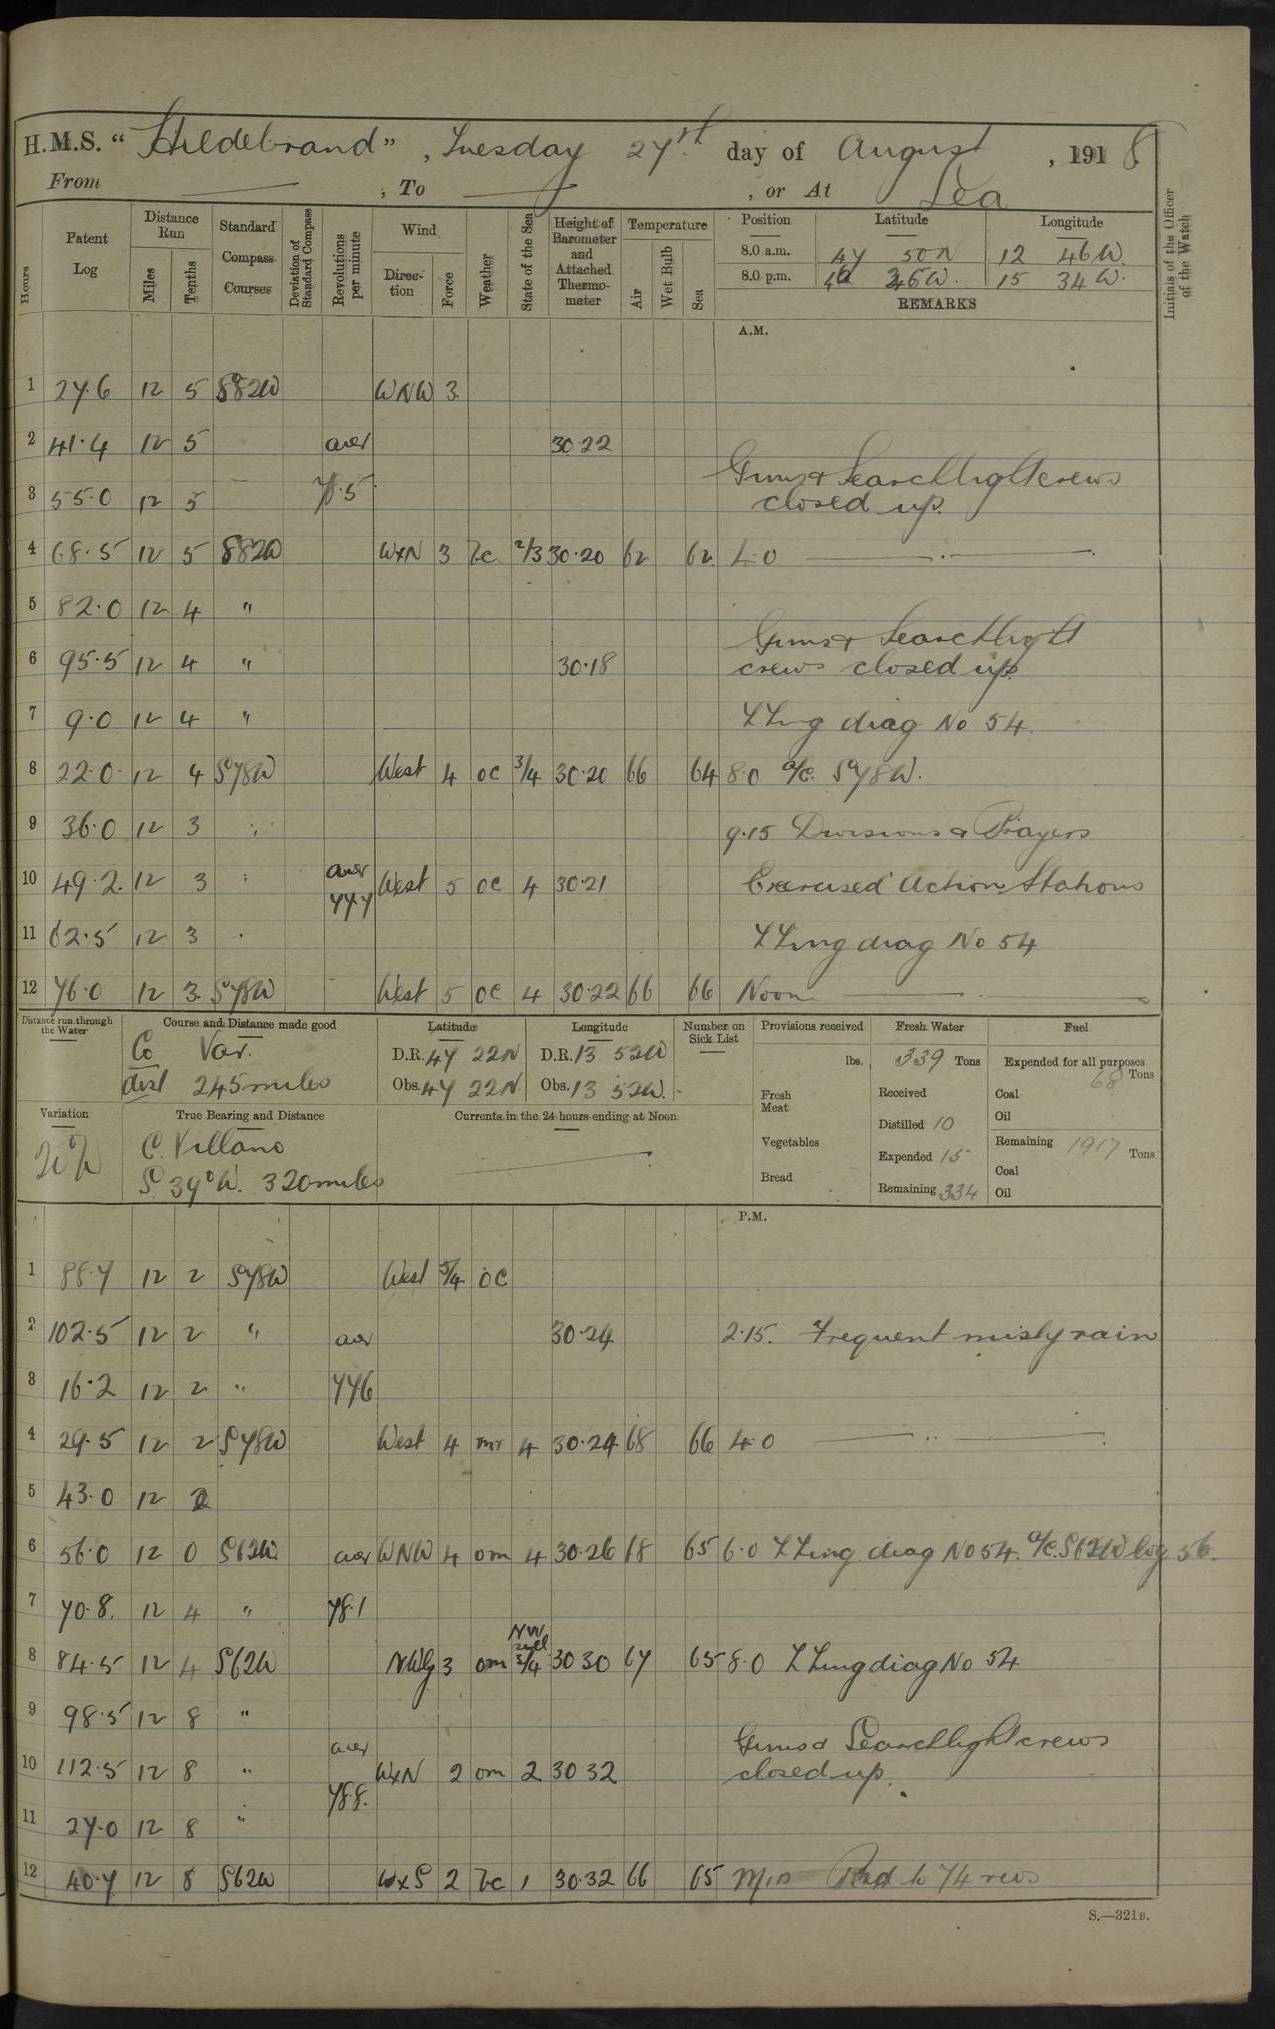 H.M.S. "Hildebrand", Tuesday 27th day of August, 1918
From — , To — , or At Sea
Hours
Patent Log
Distance Run
Miles
Tenths
Standard Compass Courses
Deviation of Standard Compass
Revolutions per minute
Wind
Direction
Force
Weather
State of the Sea
Height of Barometer and Attached Thermometer
Temperature
Air
Wet Bulb
Sea
Position Latitude Longitude
8.0 a.m. 47 50N 12 46W.
8.0 p.m. 46W. 15 34W.
REMARKS
Initials of the Officer of the Watch
A.M.
1 27.6 12 5 S82W WNW 3
2 41.4 12 5 aver 30.22
Guns & Searchlight crews
3 55.0 12 5 closed up.
4 68.5 12 5 S82W WxN 3 bc 2/3 30.20 62 62 4.0 —
5 82.0 12 4 "
Guns & Searchlight
6 95.5 12 4 " 30.18 crews closed up
7 9.0 12 4 " ZZing diag No 54
8 22.0 12 4 S78W West 4 oc 3/4 30.20 66 64 8.0 a/c. S78W.
9 36.0 12 3 " 9.15 Divisions & Prayers
10 49.2 12 3 " aver 77.7 West 5 oc 4 30.21 Exercised Action Stations
11 62.5 12 3 " ZZing diag No 54
12 76.0 12 3 S78W West 5 oc 4 30.22 66 66 Noon —
Distance run through the Water
Course and Distance made good
Co Var.
dist 245 miles
Latitude
D.R. 47 22N
Obs. 47 22N
Longitude
D.R. 13 52W
Obs. 13 52W.
Number on Sick List
Provisions received
lbs.
Fresh Meat
Vegetables
Bread
Fresh Water
339 Tons
Received
Distilled 10
Expended 15
Remaining 334
Fuel
Expended for all purposes
68 Tons
Coal
Oil
Remaining 1917 Tons
Coal
Oil
Variation
True Bearing and Distance
C. Villano
S 39°W. 320 miles
Currents in the 24 hours ending at Noon
P.M.
1 88.7 12 2 S78W West 5/4 oc
2 102.5 12 2 " aver 30.24 2.15. Frequent misty rain
3 16.2 12 2 " 77.6
4 29.5 12 2 S78W West 4 mr 4 30.24 68 66 4.0 —
5 43.0 12 2
6 56.0 12 0 S62W aver WNW 4 om 4 30.26 68 65 6.0 ZZing diag No 54. a/c. S62W log 56.
7 70.8 12 4 " 78.1
8 84.5 12 4 S62W 3 om NW swell 3/4 30 30 67 65 8.0 ZZing diag No 54
9 98.5 12 8 "
Guns & Searchlight crews
10 112.5 12 8 " aver 78.8. WxN 2 om 2 30 32 closed up.
11 27.0 12 8 "
12 40.7 12 8 S62W WxS 2 bc 1 30.32 66 65 to 74 revs
S.—321B.